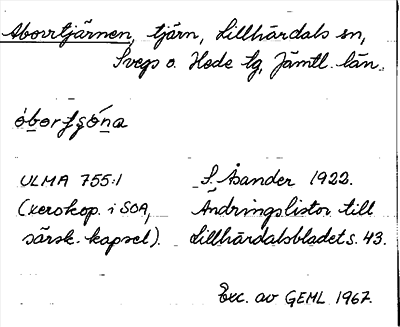 Abovrtjärnen, tjärn, Lillhärdals sn,
Svegs o. Hede tg, Jämtl. län.
óborʃʃóna
ULMA 755:1 S. Åsander 1922.
(xerokop. i SOA, Ändringslistor till
särsk. kapsel). Lillhärdalsbladet s. 43.
Exc. av GEML 1967.